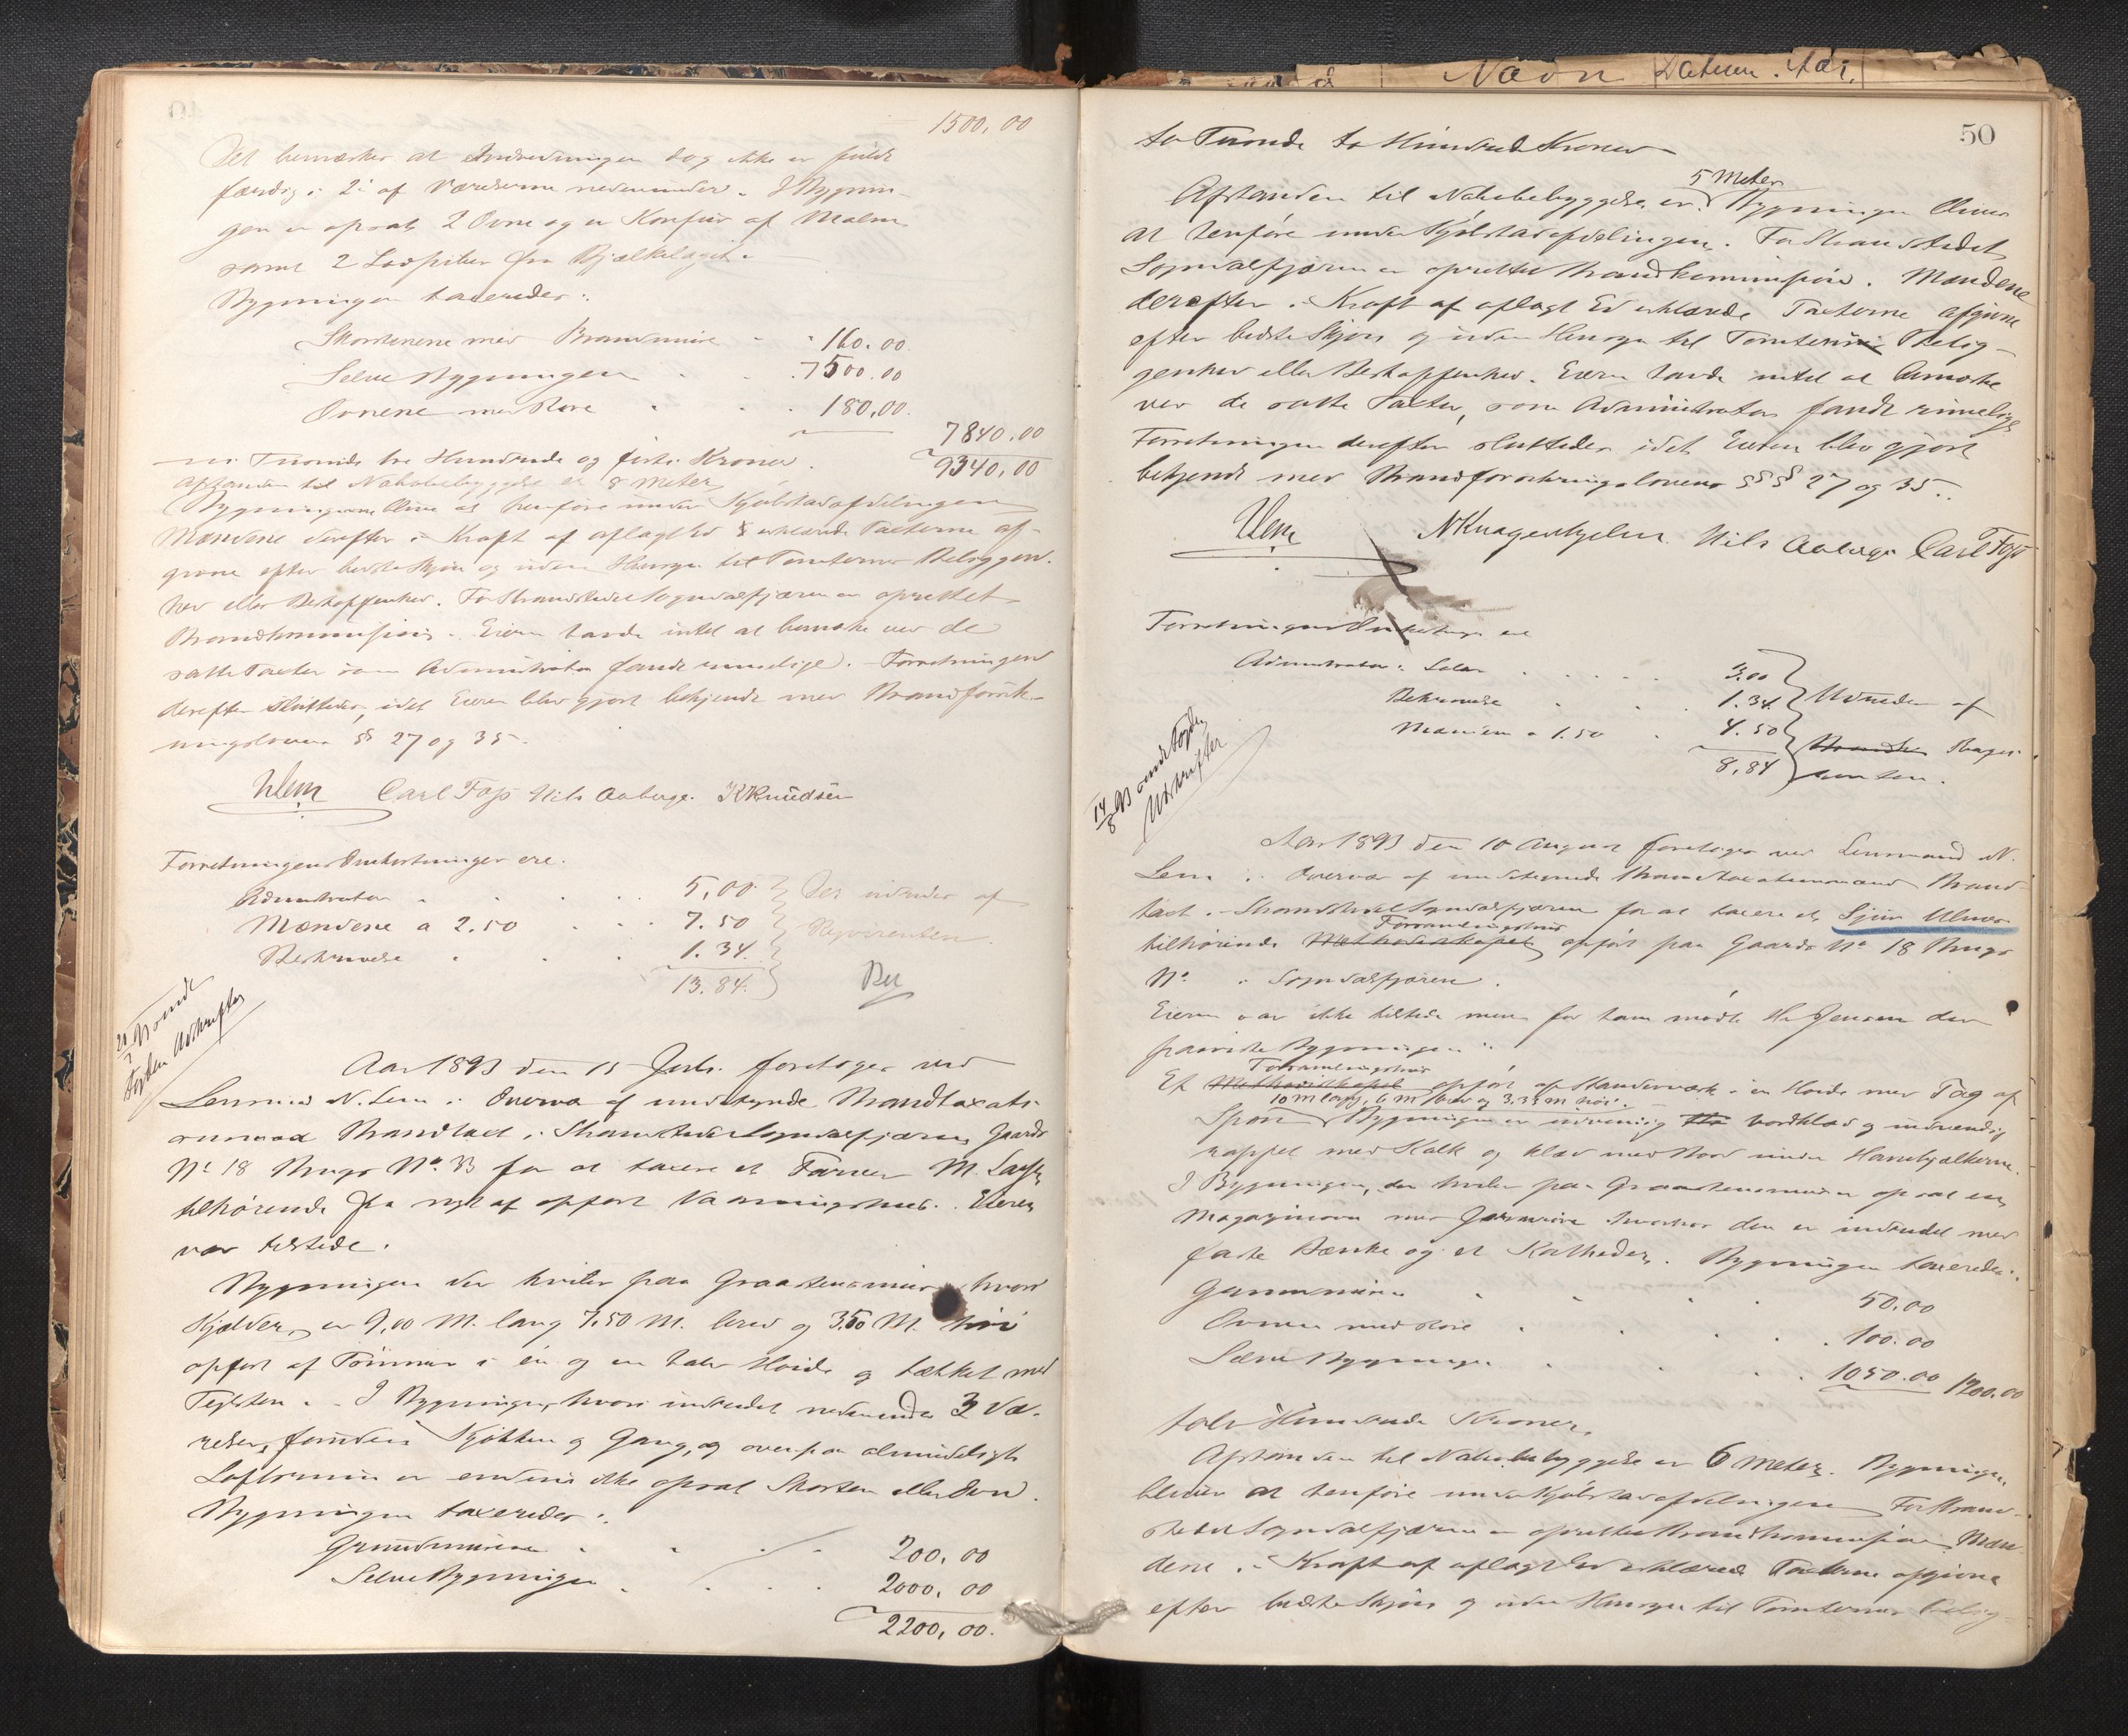 1500,00
Det bemærkes at Indredningen dog ikke er fuldt
færdig i 2 af Værelserne nedenunder. I Bygnin-
gen er opsat 2 Ovne og et Komfur af Malm
samt 2 Lodpiber fra Bjælkelaget.
Bygningen taxeredes:
Skorstenene med Brandmure 160.00
Selve Bygningen 7500.00
Ovnene med Rore 180,00
7840,00
ni Tusinde tre Hundrede og firti Kroner. 9340,00
Afstanden til Nabobebyggelse er 8 Meter
Bygningerne blive at henføre under Kjøbstadafdelingen
Mændene derefter i Kraft af aflagt Ed erklærede Taxterne af-
givne efter bedste Skjøn og uden Hensyn til Tomternes Beliggen-
hed eller Beskaffenhed. For Strandstedet Sogndalsfjæren er oprettet
Brandkommission. Eieren havde intet at bemærke ved de
satte Taxter som Administrator fandt rimelige. Forretningen
derefter sluttedes, idet Eieren blev gjort bekjendt med Brandforsik-
ringslovens §§ 27 og 35.
NLem Carl Foss Nils Aaberge. KKnudsen
Forretningens Omkostninger ere:
Administrator 5,00 Des udreder af
Mændene a 2.50 7.50
Beskrivelse 1.34
13.84.
Aar 1893 den 15 Juli foretoges ved
Lensmand N. Lem i Overvær af undertegnede Brandtaxati-
onsmænd Brandtaxt i Strandstedet Sogndalsfjæren, Gaards
No 18 Brugs No. 33 for at taxere et Farver M.
tilhørende fra nyt af opført Vaaningshus. Eieren
var tilstede.
Bygningen der hviler paa Graastensmur hvori
Kjælder, er 9,00 M. lang 7.50 M. bred og 3.50 M. høi
opført af Tømmer i én og en halv Høide og tækket med
Teglsten. I Bygningen, hvori indredet nedenunder 3 Væ-
relser, foruden Kjøkken og Gang, og ovenpaa almindeligt
Loftsrum er endnu ikke opsat Skorsten eller Ovn.
Bygningen taxeredes:
Grundmuren 200,00
Selve Bygningen 2000,00
2200,00.
50
to Tusende to Hundrede Kroner
5 Meter
Afstanden til Nabobebyggelse er. Bygningen bliver
at henføre under Kjøbstadafdelingen. For Strandstedet
Sogndalsfjæren er oprettet Brandkommission. Mændene
derefter i Kraft af aflagt Ed erklærede Taxterne afgivne
efter bedste Skjøn og uden Hensyn til Tomternes Belig-
genhed eller Beskaffenhed. Eieren havde intet at bemærke
ved de satte Taxter, som Administrator fandt rimelige
Forretningen derefter sluttedes idet Eieren blev gjort
bekjendt med Brandforsikringslovens §§§ 27 og 35.
NLem NKnagenhjelm Nils Aaberge Carl Foss
Forretningens Omkostninger ere
Administrator i Salær 3,00
Beskrivelse 1.34 Udreder af
Mændene a 1.50 4.50
8,84
Aar 1893 den 10 August foretoges ved Lensmand N.
Lem i Overvær af undertegnede Brandtaxationsmænd Brand-
taxt i Strandstedet Sogndalsfjæren for at taxere et Sjur Ulvær
Forsamlingshus
tilhørende opført paa Gaards No 18 Brugs
No. i Sogndalsfjæren.
Eieren var ikke tilstede men for ham mødte Hr Jensen der
paaviste Bygningen.
Forsamlingshus
Et opført af Standerværk i en Høide med Tag af
10 m lang, 6 m bred og 3.33 m høi.
Spon Bygningen er udvendig bordklæd og indvendig
rappet med Kalk og klæd med Bord under Hanebjælkerne.
I Bygningen, der hviler paa Graastensmur er opsat en
Magazinovn med hvorhos den er indredet med
faste Bænke og et Katheder. Bygningen taxeredes:
50.00
Ovnen med Rore 100.00
Selve Bygningen 1050.00 1200.00
tolv Hundrede Kroner.
Afstanden til Nabobebyggelse er 6 Meter. Bygningen
bliver at henføre under Kjøbstadafdelingen For Strand-
stedet Sogndalsfjæren er oprettet Brandkommission Mæn-
dene i Kraft af aflagt Ed erklærede Taxterne afgivne
efter bedste Skjøn og uden Hensyn til Tomternes Belig-